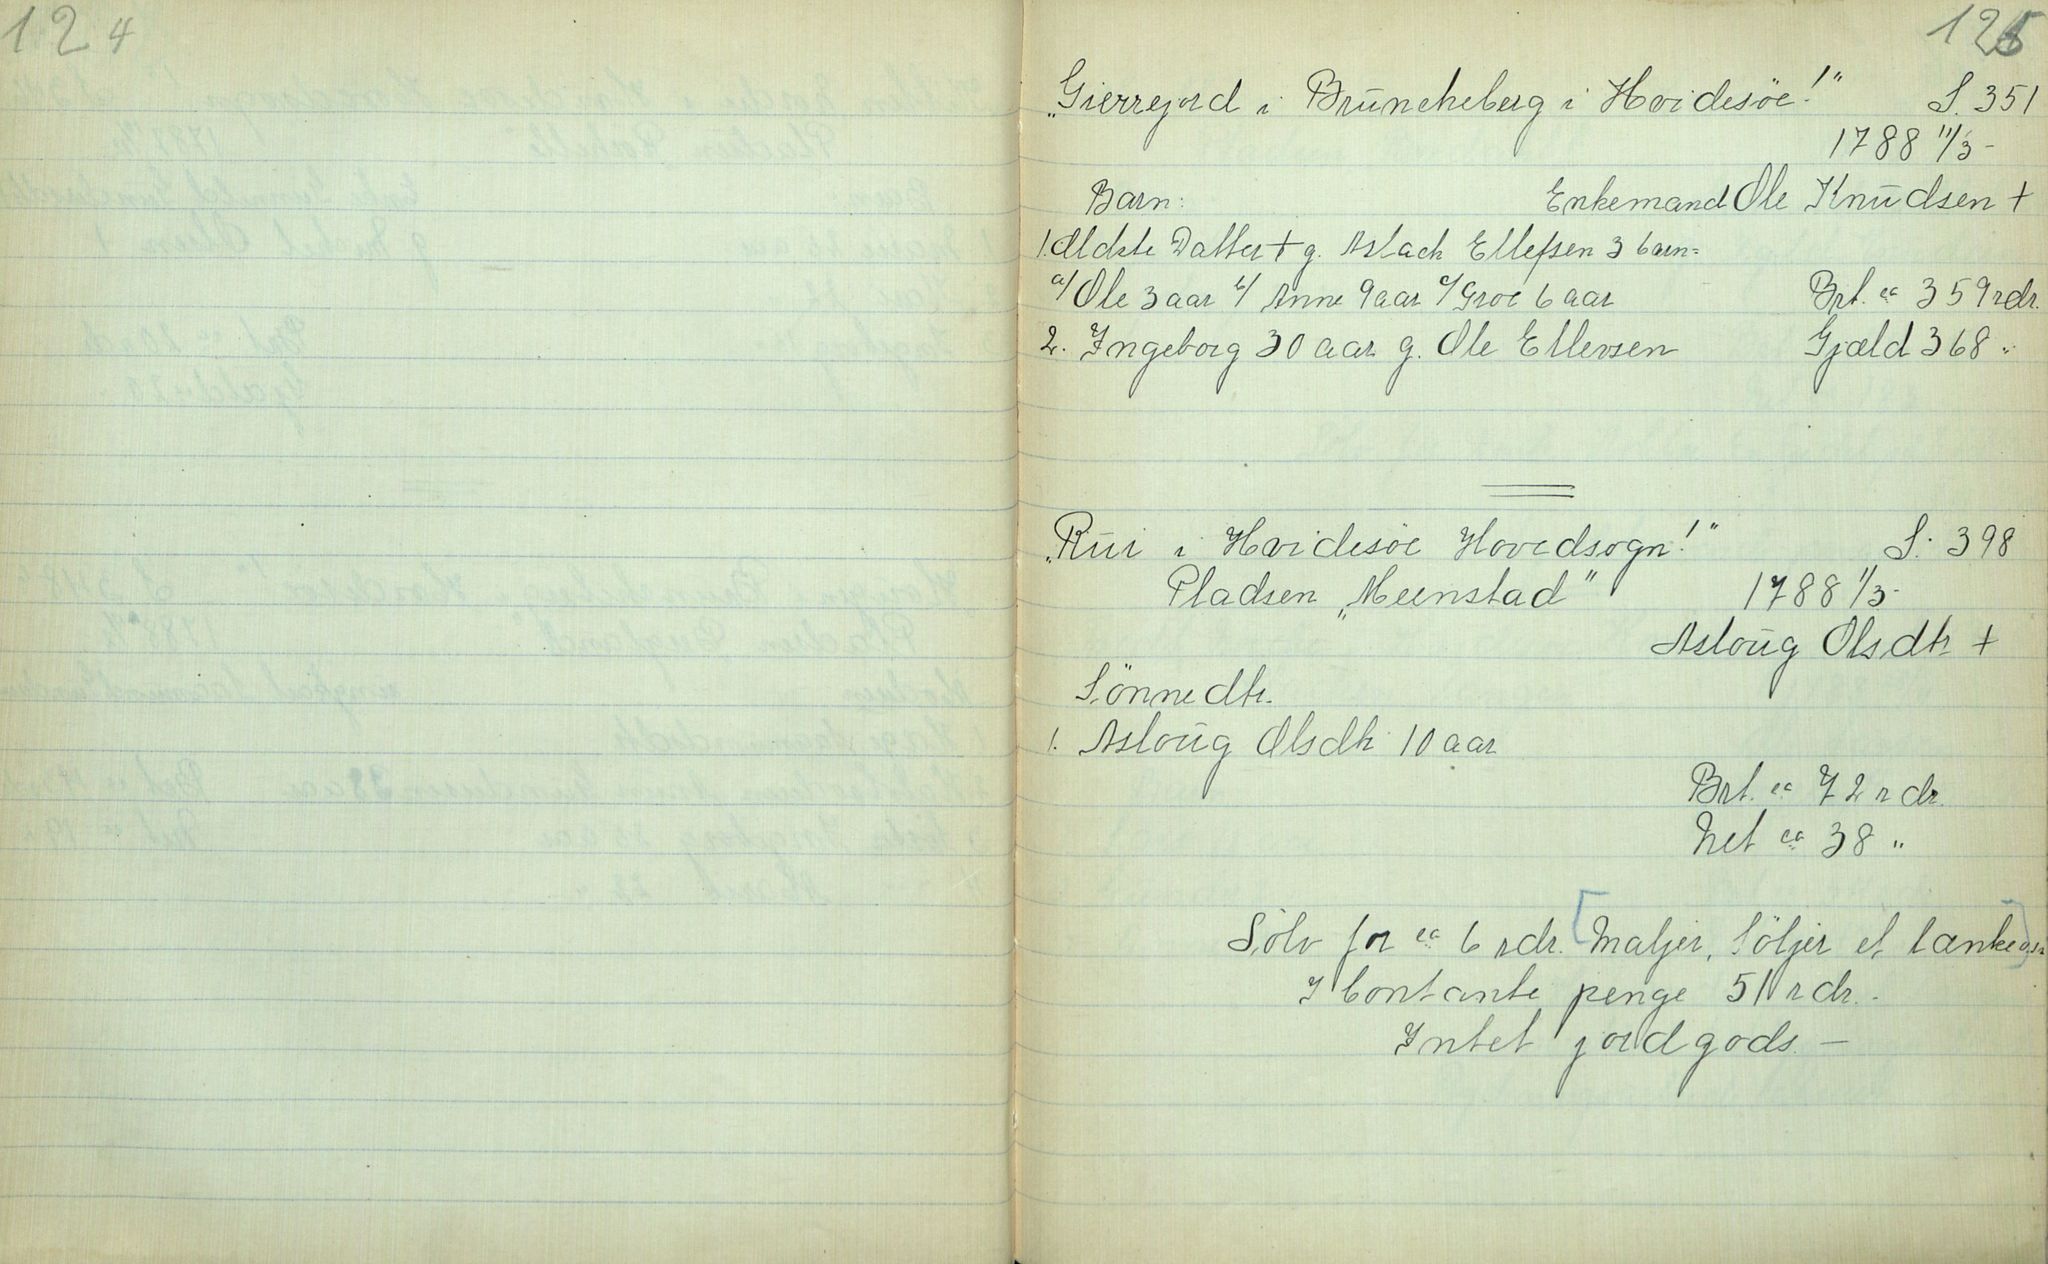 124
125
„Gierrejord i Brūncheberg i Hvidesöe!" S. 351
1788 11/3-
Barn: Enkemand Ole Knūdsen +
1. Ældste Datter + g. Aslach Ellefsen 3 barn=
a/ Ole 3 aar b/ Anne 9 aar c/ Groe 6 aar Brt. ca 359 rdr.
2. Ingeborg 30 aar g. Ole Ellevsen Gjæld 368 "
„Rūi i Hvidesöe Hovedsogn!" S. 398
Pladsen „Meenstad" 1788 11/3-
Asloūg Olsdtr +
Sönnedtr.
1. Asloūg Olsdtr 10 aar
Brt. ca 72 rdr.
Net ca 38 "
Sölv for ca 6 rdr. [Maljer, Söljer et lænke]
I Contante penge 51 rdr.-
Intet jordgods. —